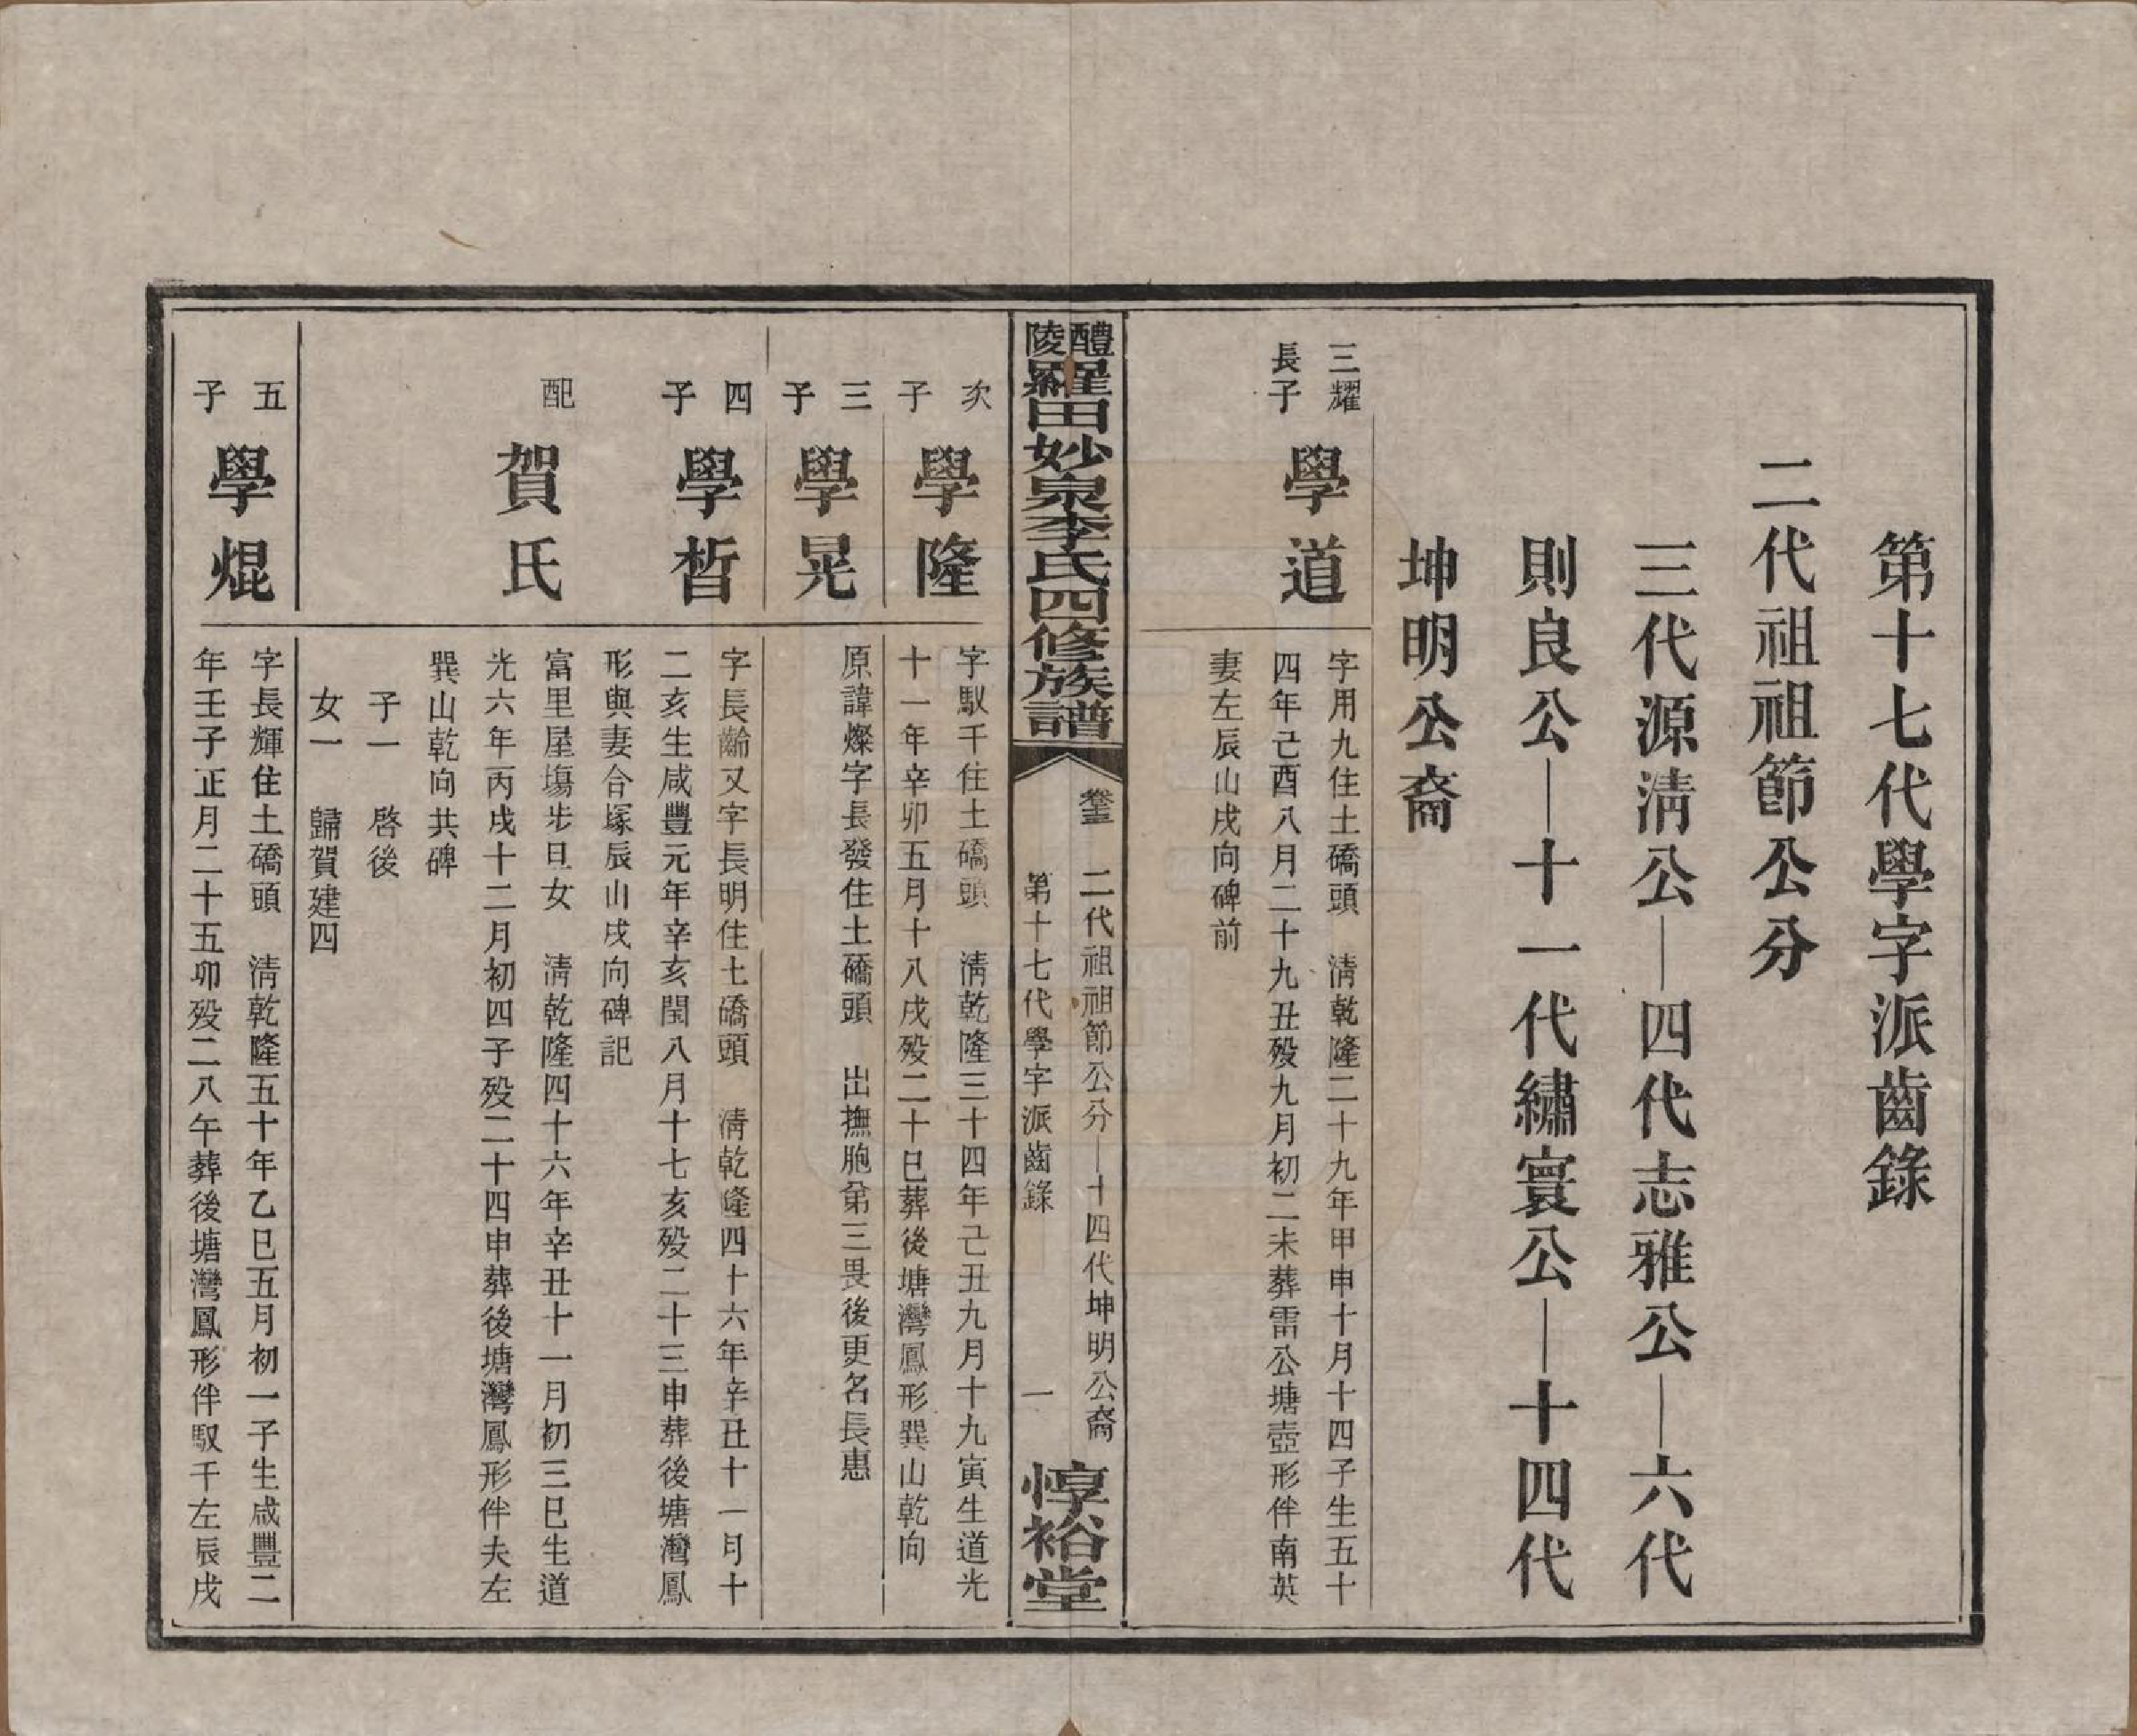 第十七代學字派齒錄
二代祖祖節公分
三代源淸公—四代志雅公—六代
則良公—十一代繡寰公—十四代
坤明公裔
三耀
長子
學道
字用九住土礄頭　淸乾隆二十九年甲申十月十四子生五十
四年己酉八月二十九丑歿九月初二未葬雷公塘壺形伴南英
妻左辰山戌向碑前
醴陵羅田妙泉李氏四修族譜
卷三
二代祖祖節公分—十四代坤明公裔
第十七代學字派齒錄
一
惇裕堂
次子
學隆
字馭千住土礄頭　淸乾隆三十四年己丑九月十九寅生道光
十一年辛卯五月十八戌歿二十巳葬後塘灣鳳形巽山乾向
三子
學晃
原諱燦字長發住土礄頭　出撫胞弟三畏後更名長惠
四子
學晳
字長齡又字長明住土礄頭　淸乾隆四十六年辛丑十一月十
二亥生咸豐元年辛亥閏八月十七亥歿二十三申葬後塘灣鳳
形與妻合塚辰山戌向碑記
配
賀氏
富里屋塲步旦女　淸乾隆四十六年辛丑十一月初三巳生道
光六年丙戌十二月初四子歿二十四申葬後塘灣鳳形伴夫左
巽山乾向共碑
子一　啓後
女一　歸賀建四
五子
學焜
字長輝住土礄頭　淸乾隆五十年乙巳五月初一子生咸豐二
年壬子正月二十五卯歿二八午葬後塘灣鳳形伴馭千左辰戌